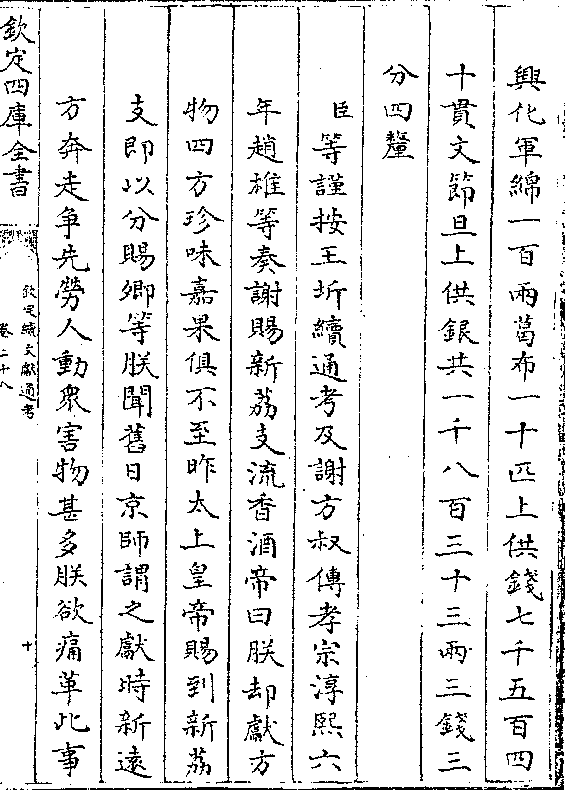 興化軍綿一百兩葛布一十匹上供錢七千五百四
十貫文節旦上供銀共一千八百三十三兩三錢三
分四釐
臣等謹按王圻續通考及謝方叔傳孝宗淳熙六
年趙雄等奏謝賜新荔支流香酒帝曰朕却獻方
物四方珍味嘉果俱不至昨太上皇帝賜到新荔
支即以分賜卿等朕聞舊日京師謂之獻時新遠
方奔走争先勞人動衆害物甚多朕欲痛革此事
欽定四庫全書
欽定續文獻通考
卷二十八
十